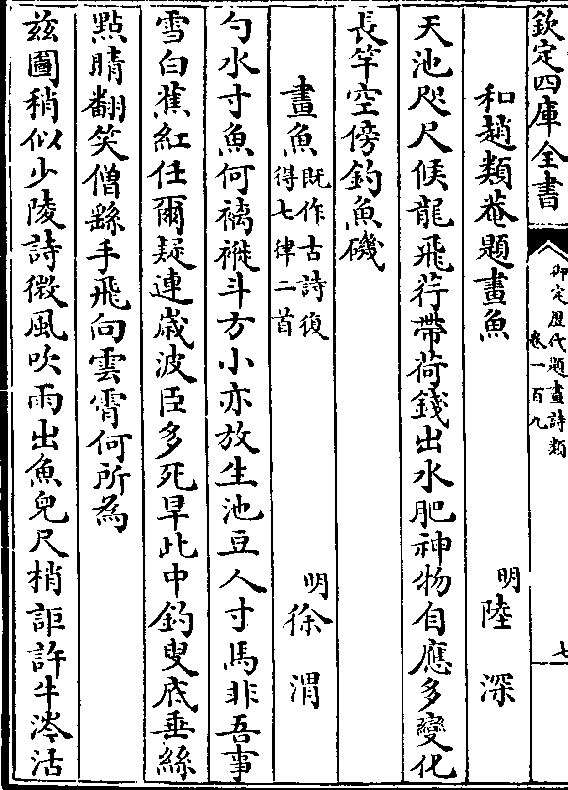 欽定四庫全書
御定歴代題畫詩類
卷一百九
七
和趙類菴題畫魚
明
陸深
天池咫尺候龍飛荇帶荷錢出水肥神物自應多變化
長竿空傍釣魚磯
畫魚
既作古詩復
得七律二首
明
徐渭
勺水寸魚何褵褷斗方小亦放生池豆人寸馬非吾事
雪白蕉紅任爾疑連歲波臣多死旱此中釣叟底垂絲
點睛翻笑僧繇手飛向雲霄何所為
兹圖稍似少陵詩微風吹雨出魚兒尺梢詎許牛涔活